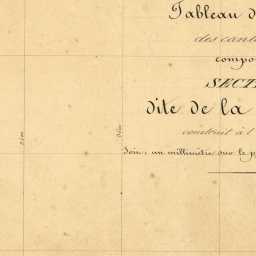 Tableau d
des cant
compo
SECT
dite de la
construit à l
Soit: un millimètre sur le p